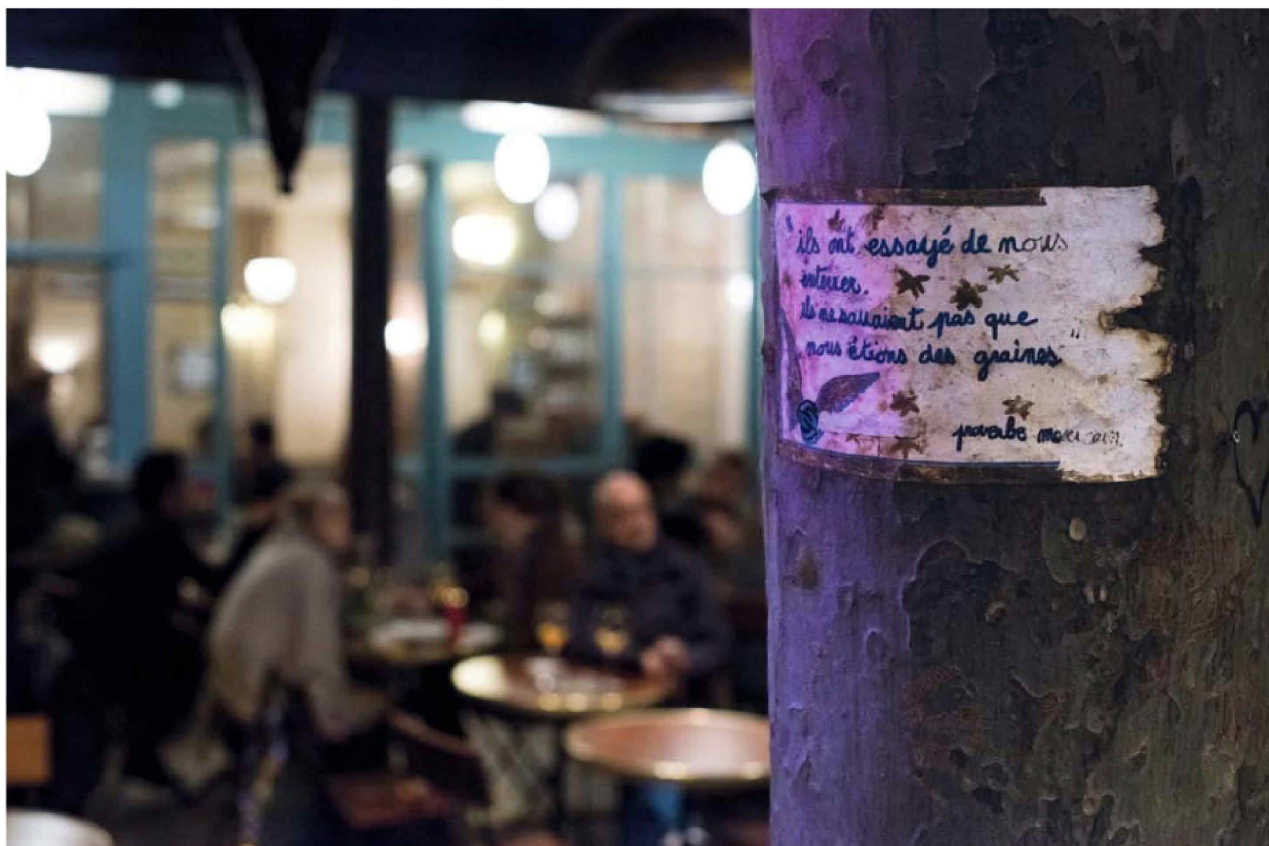 "ils ont essayé de nous
enterrer.
ils ne savaient pas que
nous étions des graines"
proverbe mexicain.